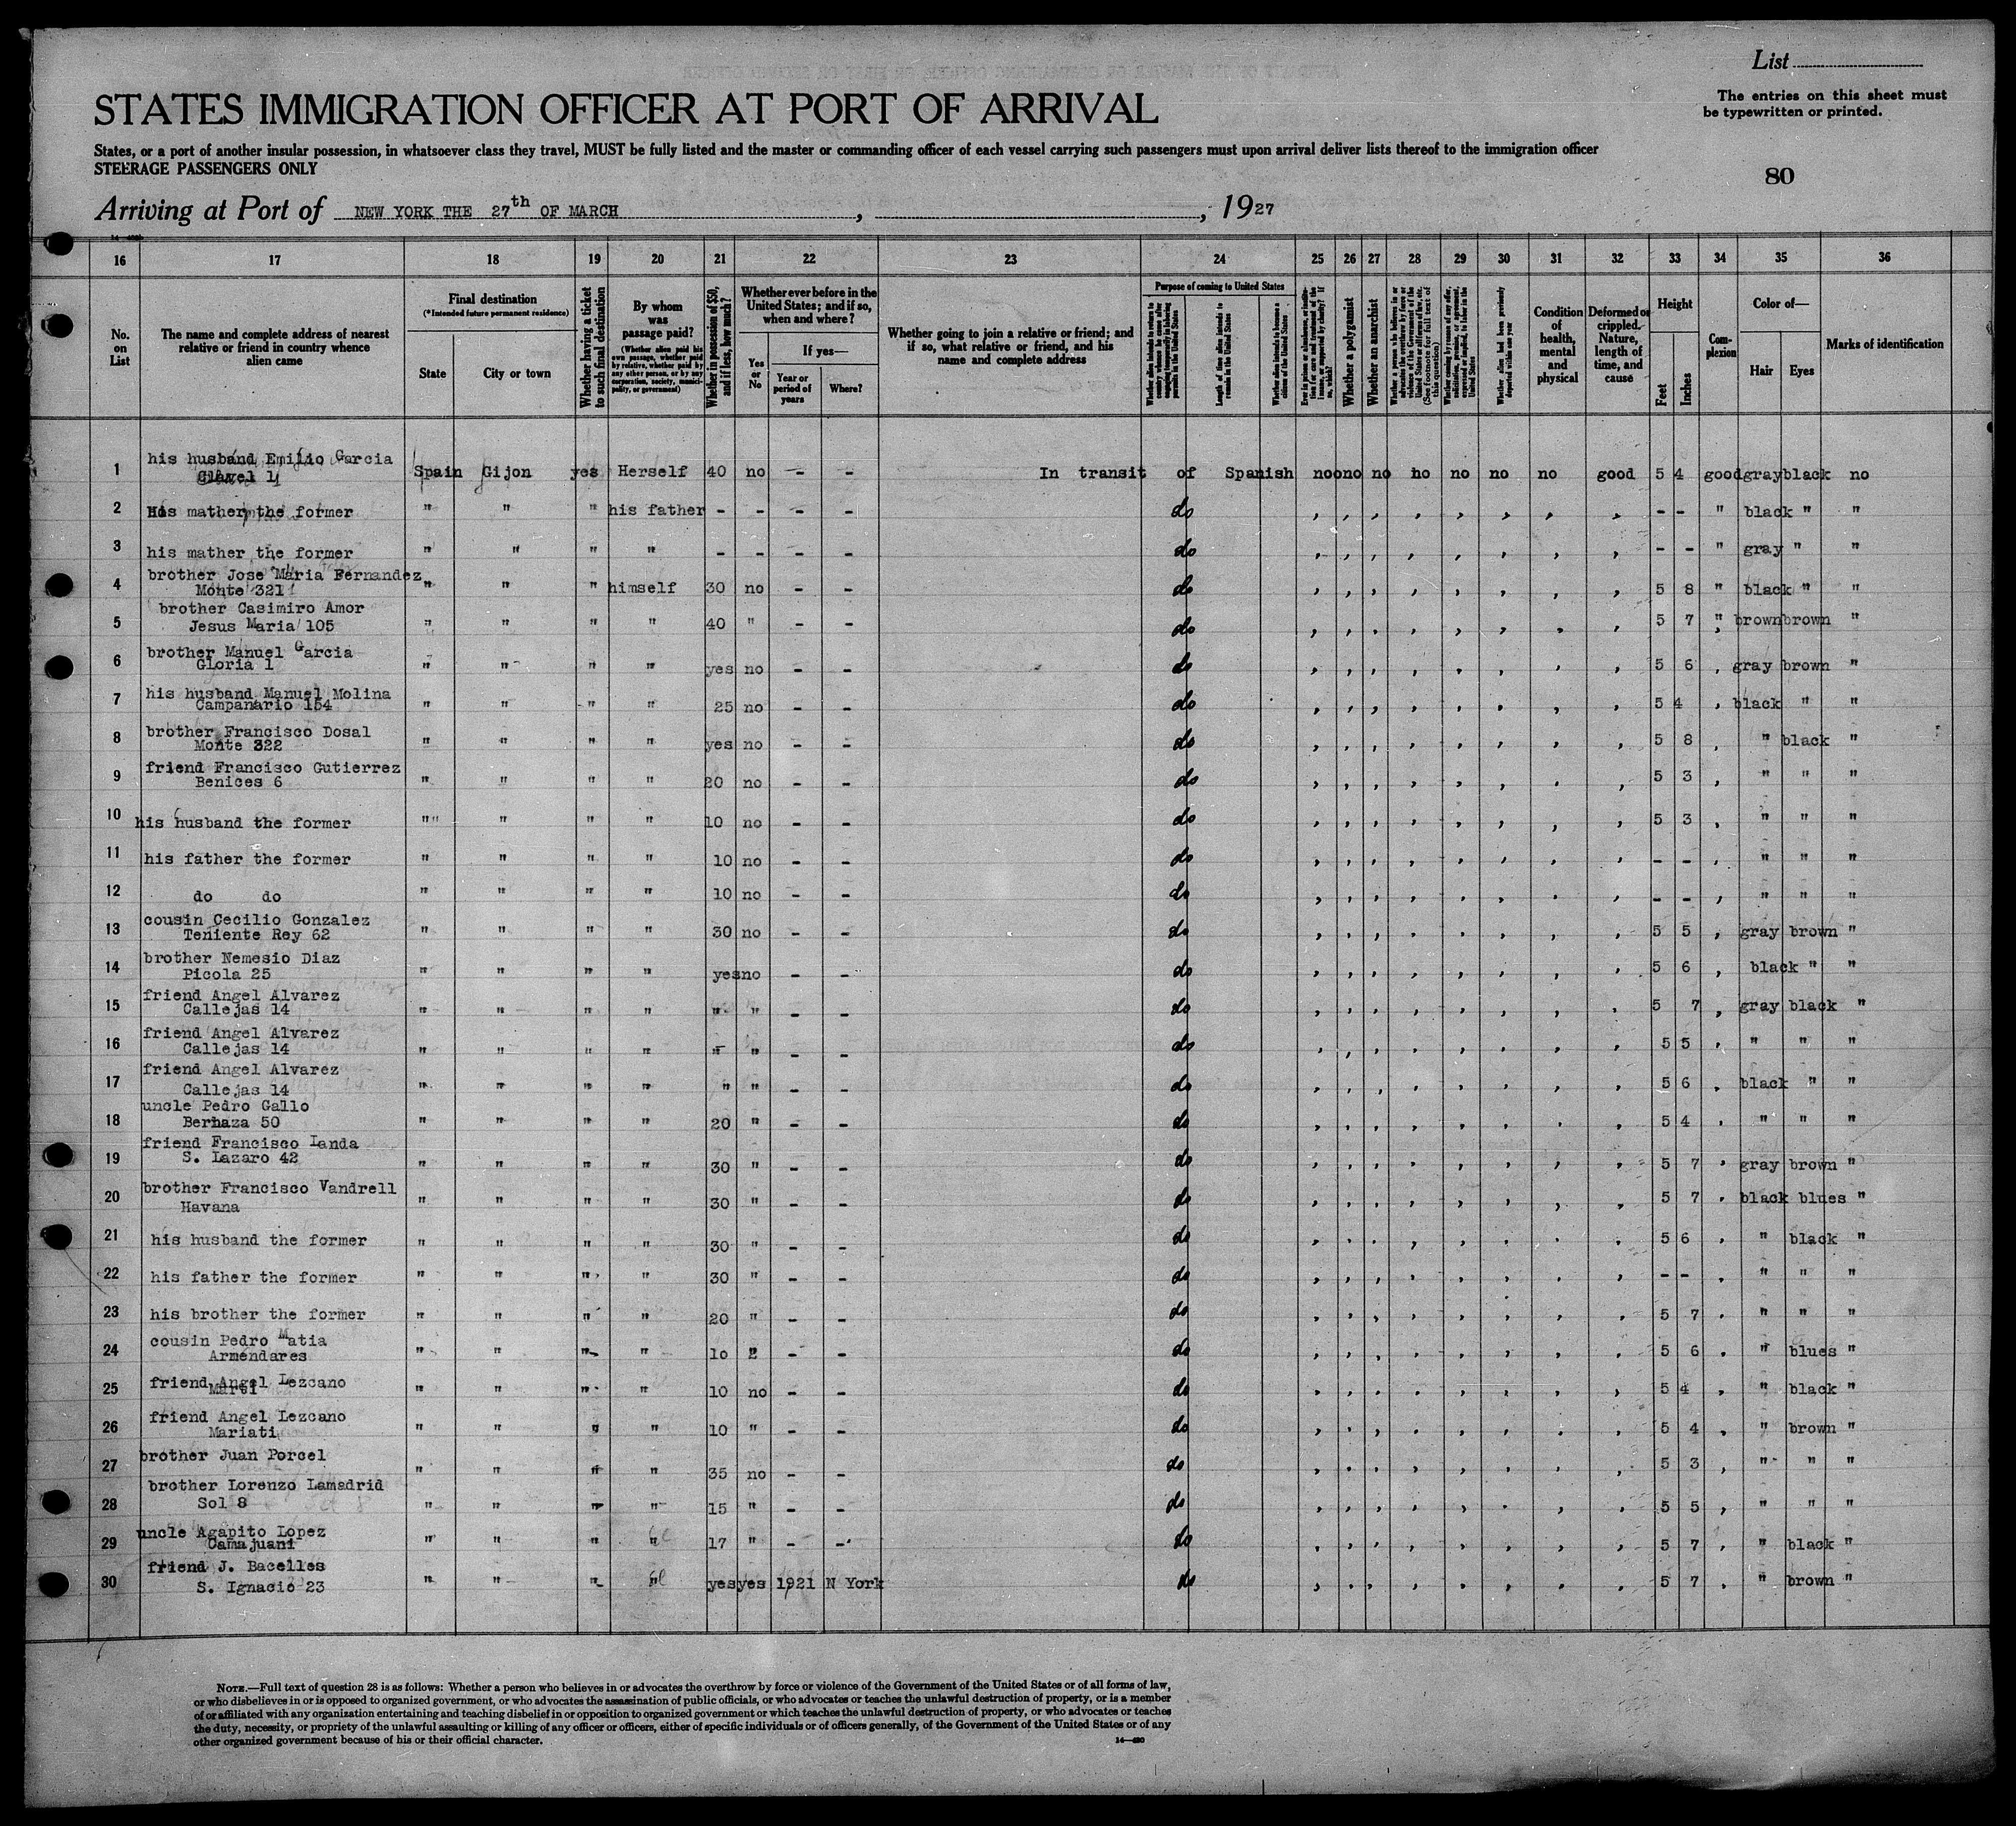 List
The entries on this sheet must
be typewritten or printed.
STATES IMMIGRATION OFFICER AT PORT OF ARRIVAL
States, or a port of another insular possession, in whatsoever class they travel, MUST be fully listed and the master or commanding officer of each vessel carrying such passengers must upon arrival deliver lists thereof to the immigration officer
STEERAGE PASSENGERS ONLY
80
Arriving at Port of NEW YORK THE 27th OF MARCH , , 1927
16 17 18 19 20 21 22 23 24 25 26 27 28 29 30 31 32 33 34 35 36
No. on List
The name and complete address of nearest relative or friend in country whence alien came
Final destination
(*Intended future permanent residence)
State
City or town
Whether having a ticket to such final destination
By whom was passage paid?
(Whether alien paid his own passage, whether paid by relative, whether paid by any other person, or by any corporation, society, municipality, or government)
Whether in possession of $50, and if less, how much?
Whether ever before in the United States; and if so, when and where?
Yes or No
If yes—
Year or period of years
Where?
Whether going to join a relative or friend; and if so, what relative or friend, and his name and complete address
Purpose of coming to United States
Length of time alien intends to remain in the United States
Whether alien intends to become a citizen of the United States
Whether a polygomist
Whether an anarchist
Whether alien had been previously deported within one year
Condition of health, mental and physical
Deformed or crippled. Nature, length of time, and cause
Height
Feet
Inches
Complexion
Color of—
Hair
Eyes
Marks of identification
1 his husband Emilio Garcia
1 Spain Gijon yes Herself 40 no - - In transit of Spanish no no no no no no no good 5 4 good gray black no
2 His mather the former " " " his father - - - - do , , , , , , , , - - " black " "
3 his mather the former " " " " - - - - do , , , , , , , , - - " gray " "
4 brother Jose Maria Fernandez
Monte 321 " " " himself 30 no - - do , , , , , , , , 5 8 " black " "
5 brother Casimiro Amor
Jesus Maria 105 " " " " 40 " - - do , , , , , , , , 5 7 " brown brown "
6 brother Manuel Garcia
Gloria 1 " " " " yes no - - do , , , , , , , , 5 6 , gray brown "
7 his husband Manuel Molina
Campanario 154 " " " " 25 no - - do , , , , , , , , 5 4 , black " "
8 brother Francisco Dosal
Monte 322 " " " " yes no - - do , , , , , , , , 5 8 , " black "
9 friend Francisco Gutierrez
Benices 6 " " " " 20 no - - do , , , , , , , , 5 3 , " " "
10 his husband the former " " " " 10 no - - do , , , , , , , , 5 3 , " " "
11 his father the former " " " " 10 no - - do , , , , , , , , - - , " " "
12 do do " " " " 10 no - - do , , , , , , , , - - , " " "
13 cousin Cecilio Gonzalez
Teniente Rey 62 " " " " 30 no - - do , , , , , , , , 5 5 , gray brown "
14 brother Nemesio Diaz
Picola 25 " " " " yes no - - do , , , , , , , , 5 6 , black " "
15 friend Angel Alvarez
Callejas 14 " " " " " " - - do , , , , , , , , 5 7 , gray black "
16 friend Angel Alvarez
Callejas 14 " " " " " " - - do , , , , , , , , 5 5 , " " "
17 friend Angel Alvarez
Callejas 14 " " " " " " - - do , , , , , , , , 5 6 , black " "
18 uncle Pedro Gallo
Bernaza 50 " " " " 20 " - - do , , , , , , , , 5 4 , " " "
19 friend Francisco Landa
S. Lazaro 42 " " " " 30 " - - do , , , , , , , , 5 7 , gray brown "
20 brother Francisco Vandrell
Havana " " " " 30 " - - do , , , , , , , , 5 7 , black blues "
21 his husband the former " " " " 30 " - - do , , , , , , , , 5 6 , " black "
22 his father the former " " " " 30 " - - do , , , , , , , , - - , " " "
23 his brother the former " " " " 20 " - - do , , , , , , , , 5 7 , " " "
24 cousin Pedro Matia
Armendares " " " " 10 " - - do , , , , , , , , 5 6 , " blues "
25 friend Angel Lezcano
Marti " " " " 10 no - - do , , , , , , , , 5 4 , " black "
26 friend Angel Lezcano
Mariati " " " " 10 " - - do , , , , , , , , 5 4 , " brown "
27 brother Juan Porcel " " " " 35 no - - do , , , , , , , , 5 3 , " " "
28 brother Lorenzo Lamadrid
Sol 8 " " " " 15 " - - do , , , , , , , , 5 5 , " " "
29 uncle Agapito Lopez
Camajuani " " " " 17 " - - do , , , , , , , , 5 7 , " black "
30 friend J. Bacelles
S. Ignacio 23 " " " " yes yes 1921 N York do , , , , , , , , 5 7 , " brown "
NOTE.—Full text of question 28 is as follows: Whether a person who believes in or advocates the overthrow by force or violence of the Government of the United States or of all forms of law,
or who disbelieves in or is opposed to organized government, or who advocates the assassination of public officials, or who advocates or teaches the unlawful destruction of property, or is a member
of or affiliated with any organization entertaining and teaching disbelief in or opposition to organized government or which teaches the unlawful destruction of property, or who advocates or teaches
the duty, necessity, or propriety of the unlawful assaulting or killing of any officer or officers, either of specific individuals or of officers generally, of the Government of the United States or of any
other organized government because of his or their official character.
14—430